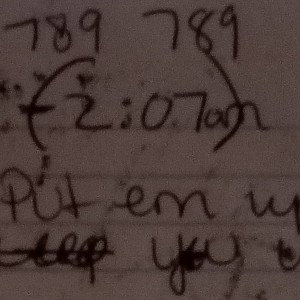 789 789
(2:07am)
Put em up
you